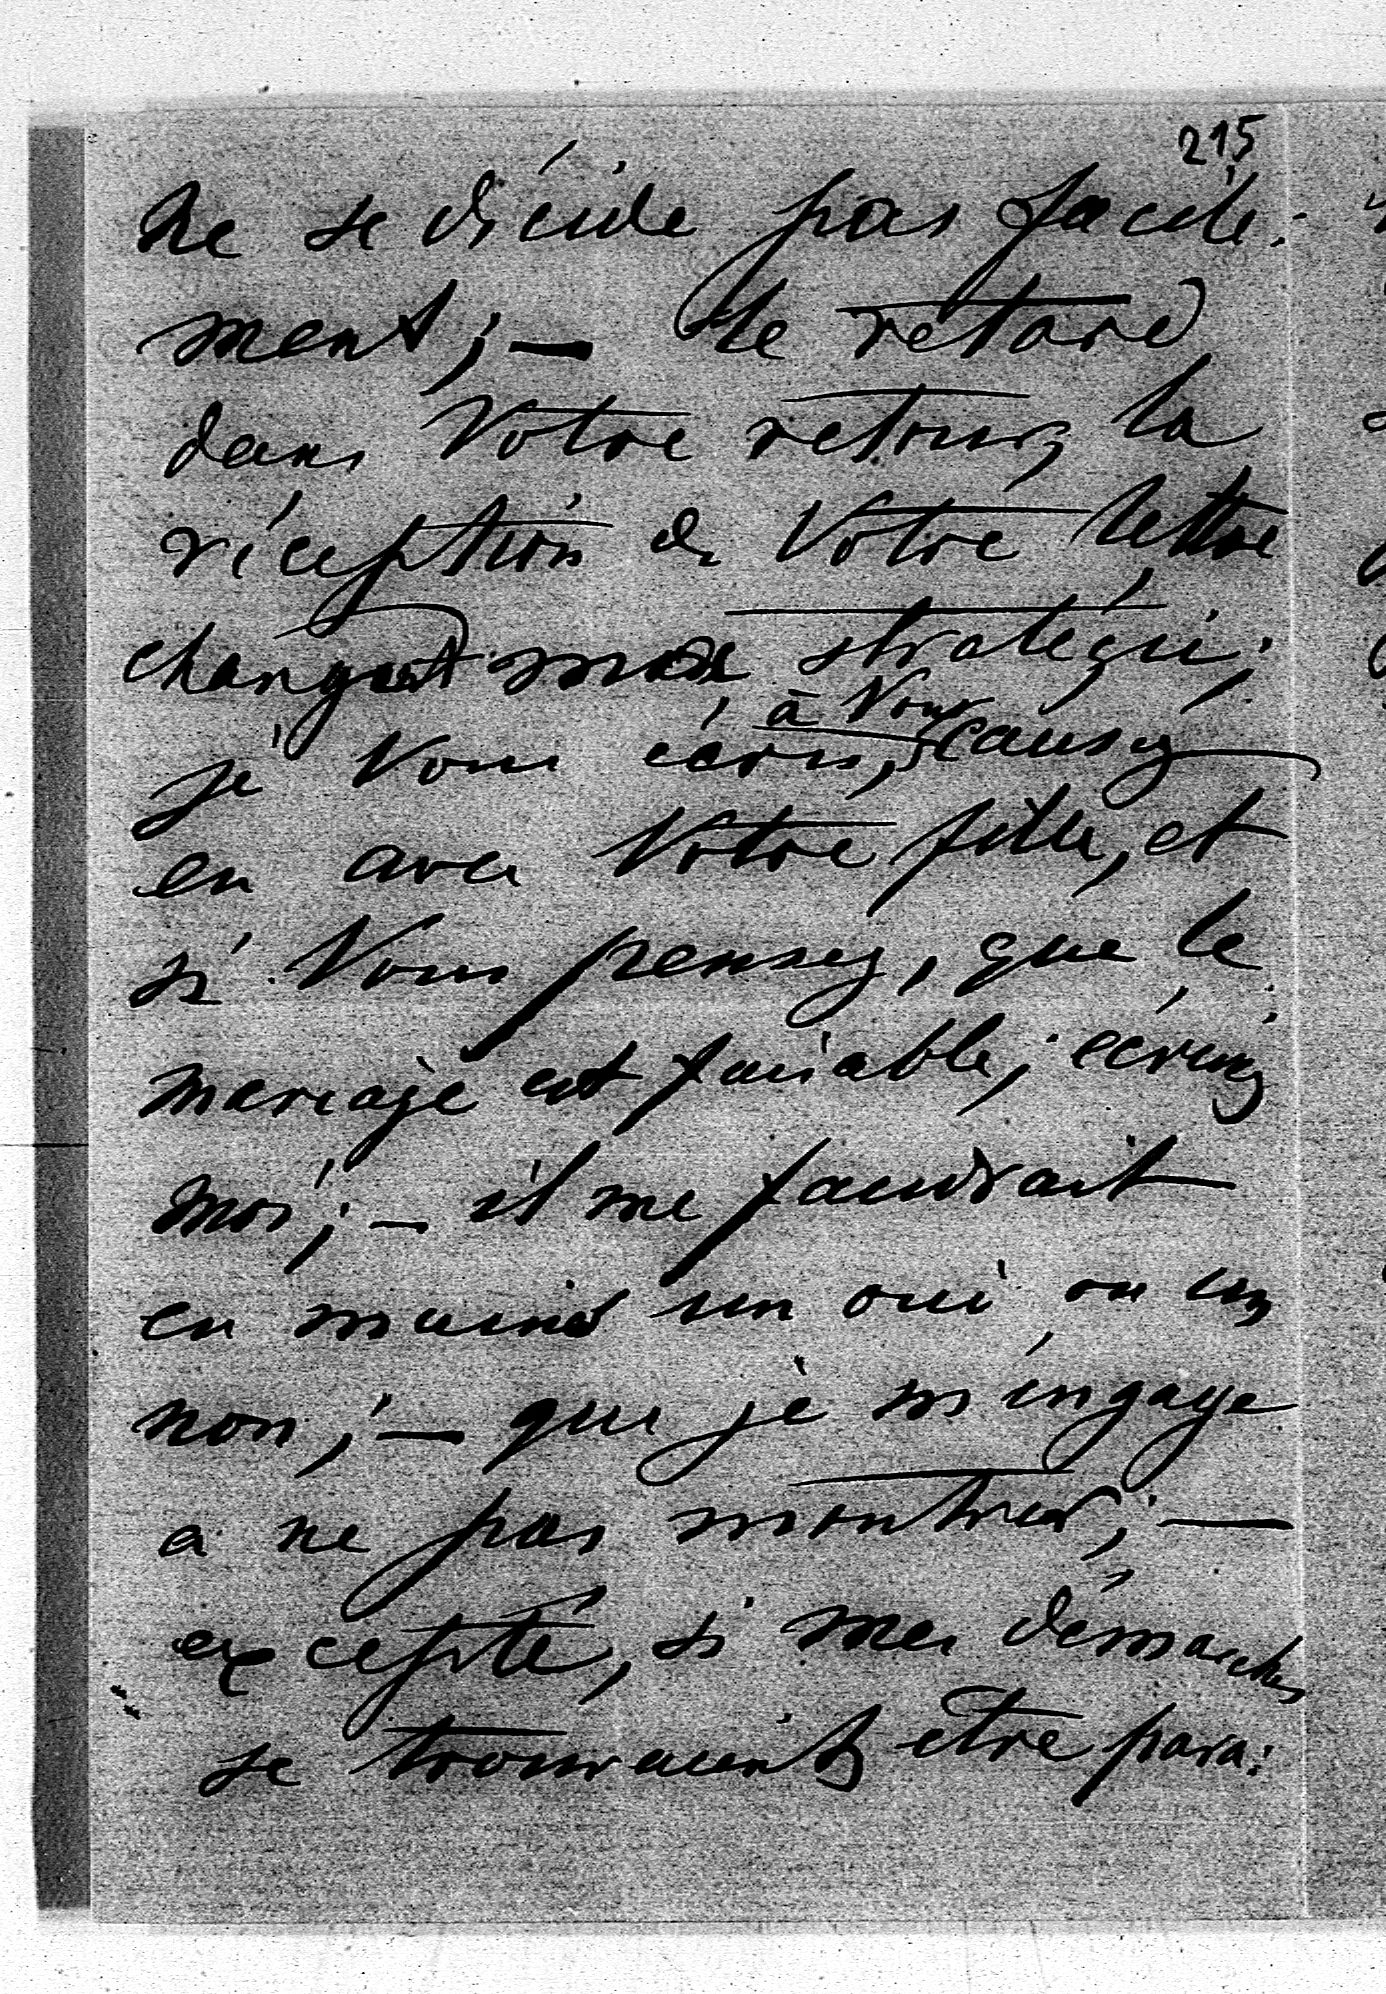 215
ne se décide pas facile:
ment; — le retard
dans Votre retour, la
réception de Votre lettre
changent ma stratégie;
à Vous
je Vous écris, causez
en avec Votre fille, et
si Vous pensez, que le
mariage est faisable, écrivez
moi; — il me faudrait
en mains un oui ou un
non; — que je m'engage
a ne pas montrer; —
excepté, si mes démarches
se trouvaient être para: